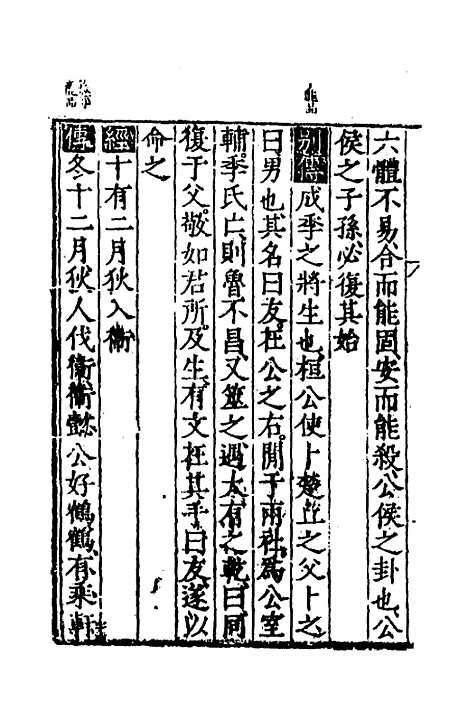 六體不易合而能固安而能殺公侯之卦也公
侯之子孫必復其始
別傳成季之將生也桓公使卜楚丘之父卜之
曰男也其名曰友在公之右閒于兩社爲公室
輔季氏亡則魯不昌又筮之遇大有之乾曰同
復于父敬如君所及生有文在其手曰友遂以
命之
經十有二月狄入衞
傳冬十二月狄人伐衞衞懿公好鶴鶴有乘軒